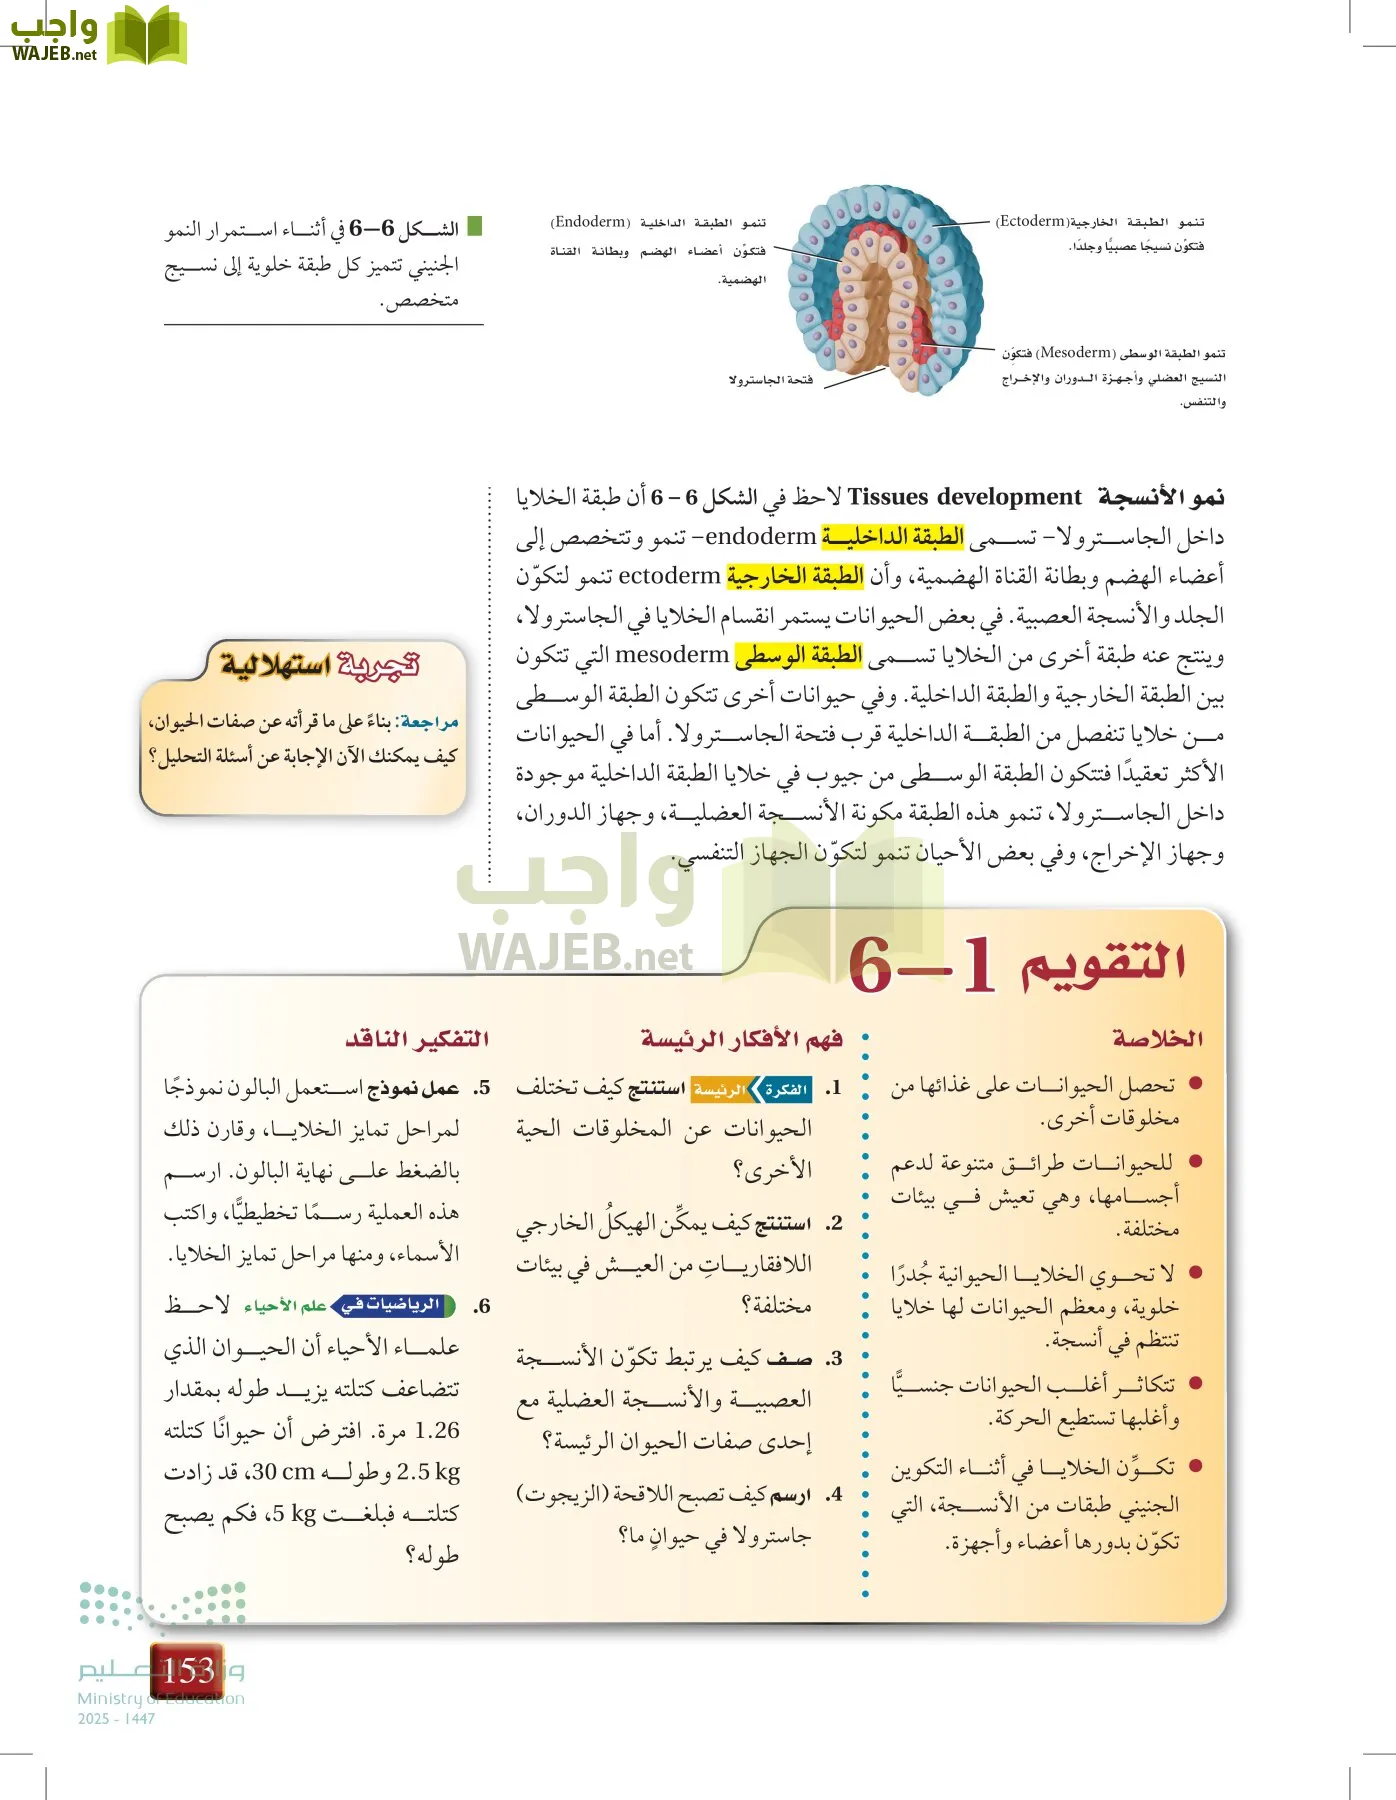 واجب
WAJEB.net
تنمو الطبقة الخارجية(Ectoderm)
فتكوّن نسيجًا عصبيًّا وجلدًا.
تنمو الطبقة الوسطى (Mesoderm) فتكوّن
النسيج العضلي وأجهزة الدوران والإخراج
والتنفس.
تنمو الطبقة الداخلية (Endoderm)
فتكوّن أعضاء الهضم وبطانة القناة
الهضمية.
فتحة الجاسترولا
الشكل 6–6 في أثناء استمرار النمو
الجنيني تتميز كل طبقة خلوية إلى نسيج
متخصص.
نمو الأنسجة Tissues development لاحظ في الشكل 6 – 6 أن طبقة الخلايا
داخل الجاسترولا- تسمى الطبقة الداخلية endoderm- تنمو وتتخصص إلى
أعضاء الهضم وبطانة القناة الهضمية، وأن الطبقة الخارجية ectoderm تنمو لتكوّن
الجلد والأنسجة العصبية. في بعض الحيوانات يستمر انقسام الخلايا في الجاسترولا،
وينتج عنه طبقة أخرى من الخلايا تسمى الطبقة الوسطى mesoderm التي تتكون
بين الطبقة الخارجية والطبقة الداخلية. وفي حيوانات أخرى تتكون الطبقة الوسطى
من خلايا تنفصل من الطبقة الداخلية قرب فتحة الجاسترولا. أما في الحيوانات
الأكثر تعقيدًا فتتكون الطبقة الوسطى من جيوب في خلايا الطبقة الداخلية موجودة
داخل الجاسترولا، تنمو هذه الطبقة مكونة الأنسجة العضلية، وجهاز الدوران،
وجهاز الإخراج، وفي بعض الأحيان تنمو لتكوّن الجهاز التنفسي.
تجربة استهلالية
مراجعة: بناءً على ما قرأته عن صفات الحيوان،
كيف يمكنك الآن الإجابة عن أسئلة التحليل؟
واجب
WAJEB.net
التقويم 1–6
الخلاصة
تحصل الحيوانات على غذائها من
مخلوقات أخرى.
للحيوانات طرائق متنوعة لدعم
أجسامها، وهي تعيش في بيئات
مختلفة.
لا تحوي الخلايا الحيوانية جُدرًا
خلوية، ومعظم الحيوانات لها خلايا
تنتظم في أنسجة.
تتكاثر أغلب الحيوانات جنسيًّا
وأغلبها تستطيع الحركة.
تكوِّن الخلايا في أثناء التكوين
الجنيني طبقات من الأنسجة، التي
تكوّن بدورها أعضاء وأجهزة.
فهم الأفكار الرئيسة
1. الفكرة الرئيسة استنتج كيف تختلف
الحيوانات عن المخلوقات الحية
الأخرى؟
2. استنتج كيف يمكِّن الهيكلُ الخارجي
اللافقارياتِ من العيش في بيئات
مختلفة؟
3. صف كيف يرتبط تكوّن الأنسجة
العصبية والأنسجة العضلية مع
إحدى صفات الحيوان الرئيسة؟
4. ارسم كيف تصبح اللاقحة (الزيجوت)
جاسترولا في حيوانٍ ما؟
التفكير الناقد
5. عمل نموذج استعمل البالون نموذجًا
لمراحل تمايز الخلايا، وقارن ذلك
بالضغط على نهاية البالون. ارسم
هذه العملية رسمًا تخطيطيًّا، واكتب
الأسماء، ومنها مراحل تمايز الخلايا.
6. الرياضيات في علم الأحياء لاحظ
علماء الأحياء أن الحيوان الذي
تتضاعف كتلته يزيد طوله بمقدار
1.26 مرة. افترض أن حيوانًا كتلته
2.5 kg وطوله 30 cm، قد زادت
كتلته فبلغت 5 kg، فكم يصبح
طوله؟
وزارة التعليم
Ministry of Education
2025 - 1447
153